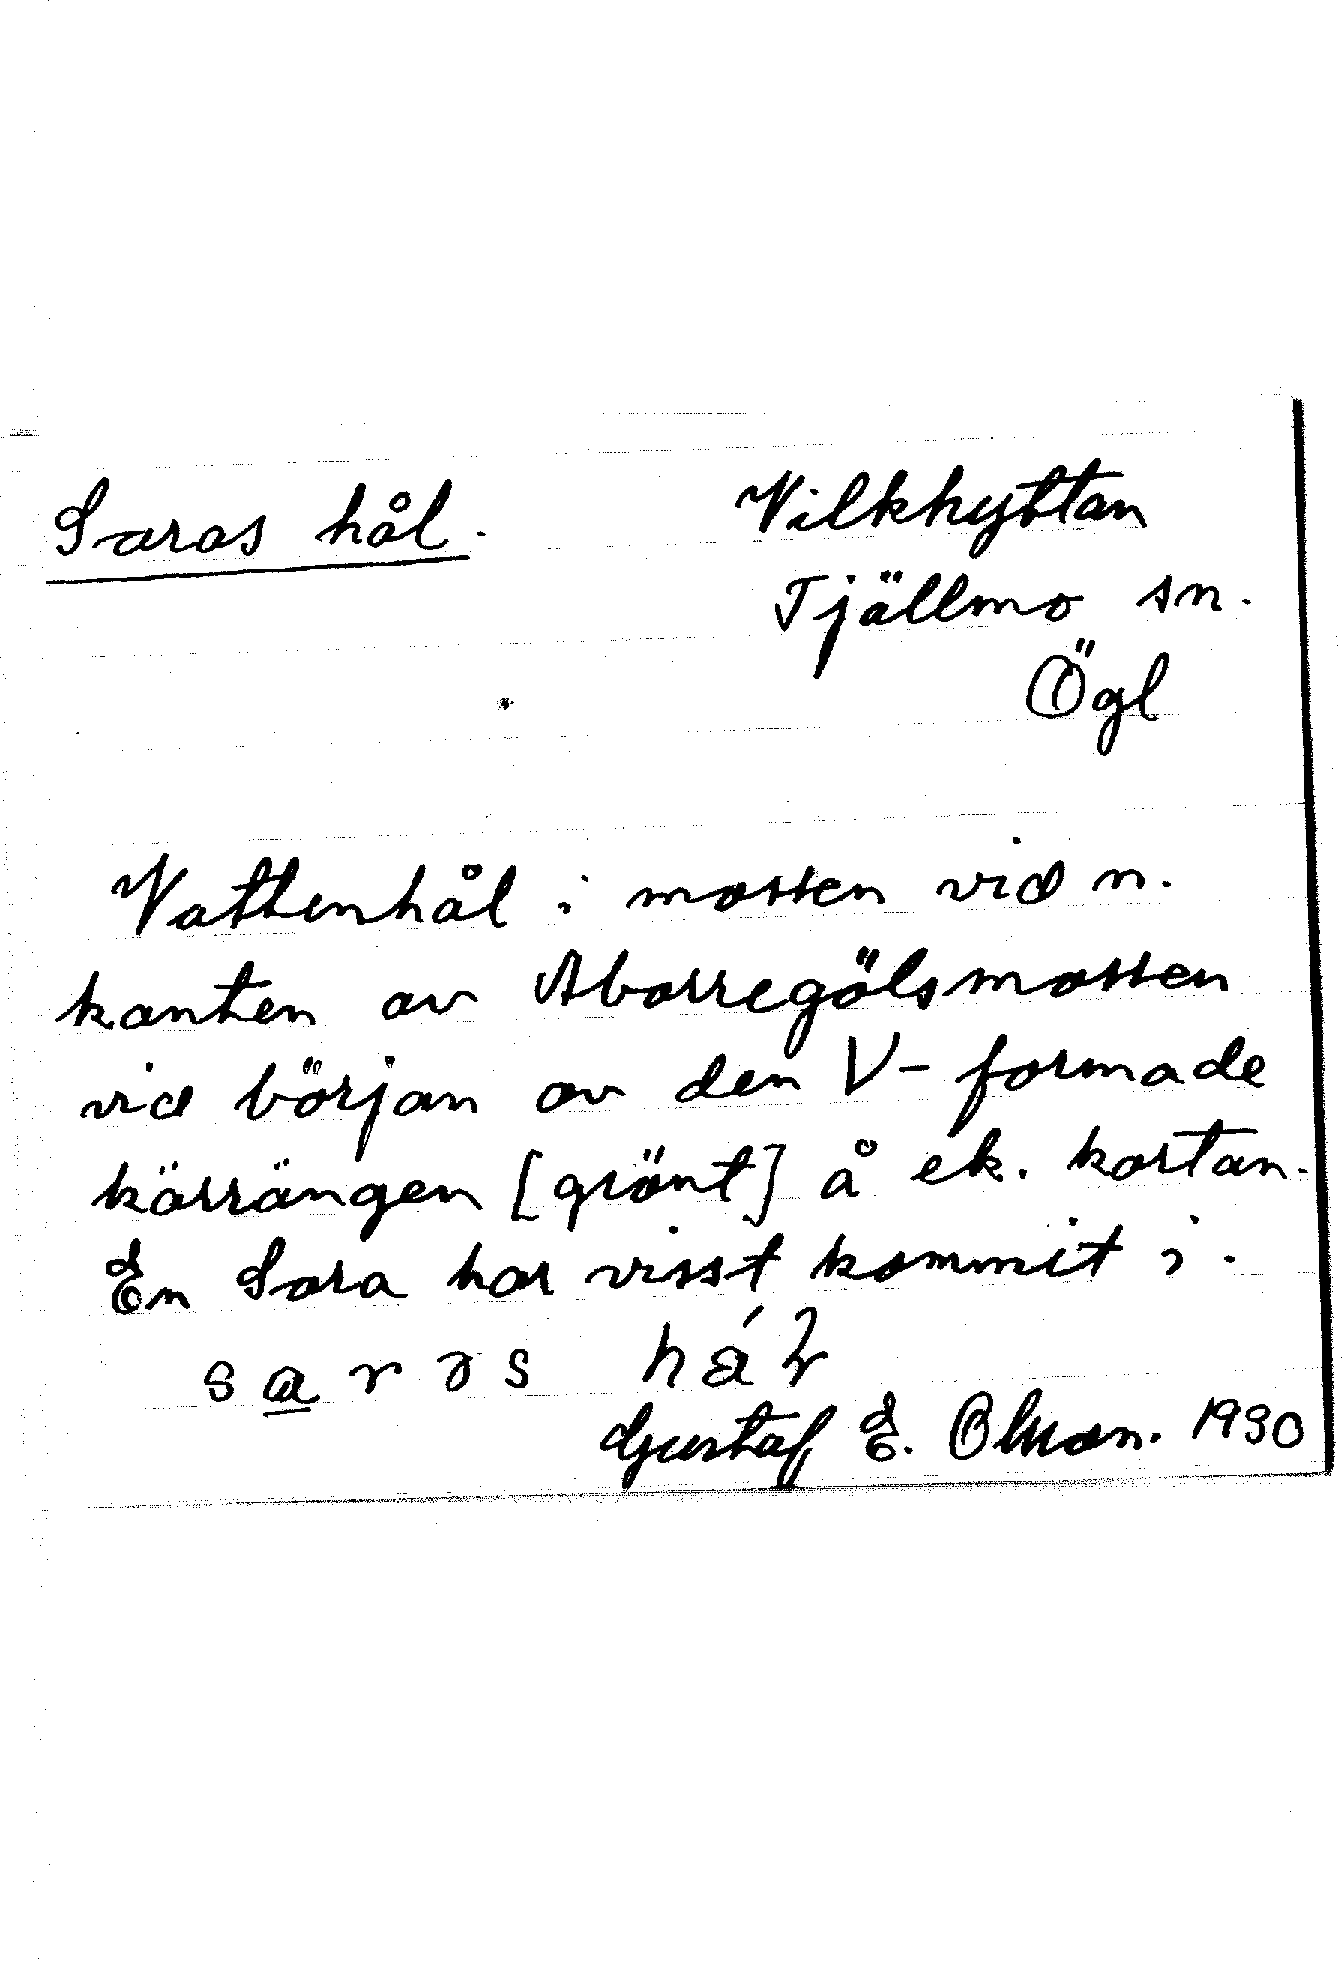 Saras hål.
Vilkhyttan
Tjällmo sn.
Ögl
Vattenhål i mossen vid n.
kanten av Aborregölsmossen
vid början av den V-formade
kärrängen [grönt] å ek. kartan.
En Sara har visst kommit i.
sarəs
Gustaf E. Olsson. 1930